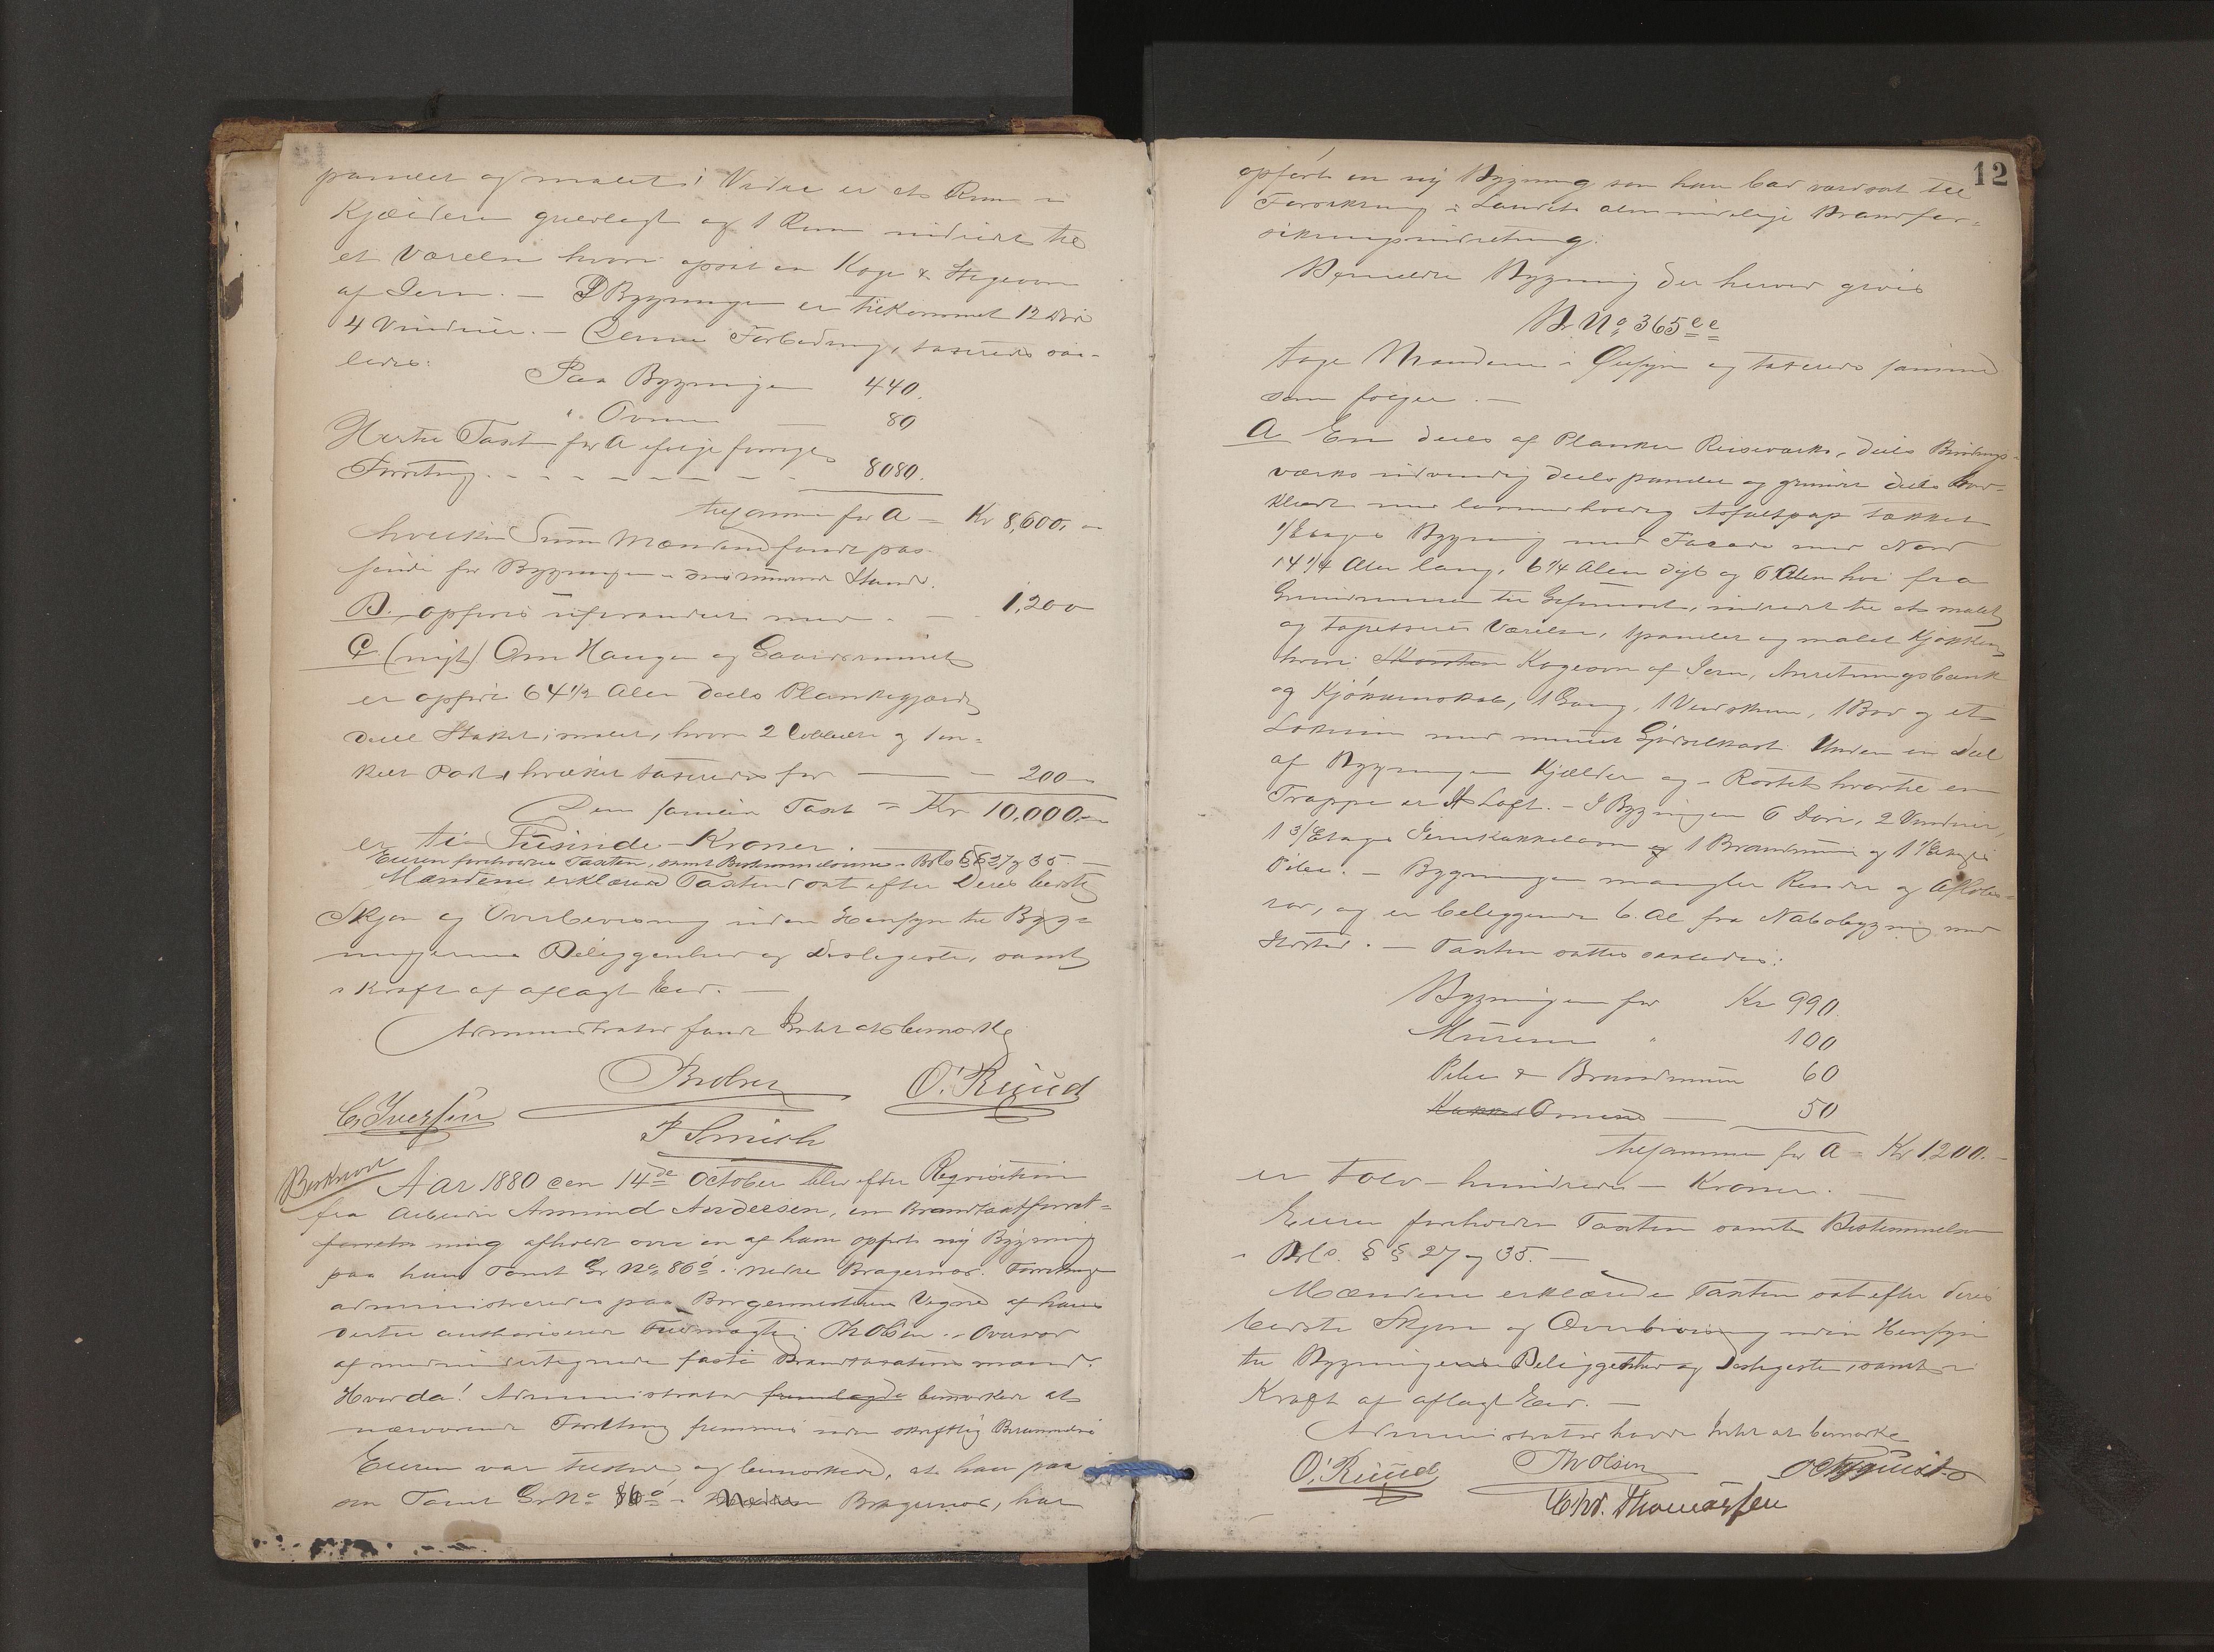 panelet og malet; Videre er et Rum i
Kjelderen gulvlagt og 1 Rum indredet til
et Værelse hvori opsat en Koge & Stegeovn
af Jern. — I Bygningen er tilkommet 12 Døre
4 Vinduer. — Denne Forbedring, taxeredes saa-
ledes:
Paa Bygningen 440.
" Ovnen — 80
Hertil Taxt for A ifølge forrige
Forretning. - - - - - - - 8080.
tilsammen for A — Kr 8,600. —
hvilken Sum Mændene fandt pas-
sende for Bygningen i dens nuværende Stand.
B. opføres uforandret med - — - 1,200
C. (nyt) Om Haugen og Gaardsrummet
er opført 64 1/2 Alen deels Plankegjærde
deels Stakit, malet, hvori 2 dobbelte og 1 en-
kelt Port, hvilket taxeredes for — — 200 —
Den samlede Taxt = Kr 10,000. —
er ti — Tusinde — Kroner. —
Eieren foreholdtes Taxten, samt Bestemmelserne i Brl's §§ 27 og 35. —
Mændene erklærede Taxten sat efter Deres bedste
Skjøn og Overbevisning uden Hensyn til Byg-
ningernes Beliggenhed og desligeste, samt
i Kraft af aflagt Eed. —
Administrator fandt Intet at bemærke
O. Ruud
C. Iversen
F Smith
Beskrevet
Aar 1880 den 14de October blev efter Reqvisition
fra Arbeider Amund Andersen, en Brandtaxtforret-
forretn ning afholdt over en af ham opført ny Bygning
paa hans Tomt Gr No 86 i nedre Bragernes. Forretningen
administreredes paa Borgermesterens Vegne af hans
dertil authoriserede Fuldmægtig Th Olsen. — Overvær
af medundertegnede faste Brandtaxationsmænd.
Hvorda! Administrator fremlagde bemærkede at
nærværende Forretning fremmes uden skriftlig Berammelse
Eieren var tilstede, og bemærkede, at han paa
sin Tomt Gr No 86 i Nedre Bragernes, har
12
opført en ny Bygning som han bad værdsat til
Forsikring i Landets almindelige Brandfor-
sikringsindretning.
Bemeldte Bygning der herved gives
Br No 365 ee
toge Mændene i Øiesyn og taxerede samme
som følger. —
A En deels af Planker Reisværks, deels Bindings-
værks indvendig deels panelet og grundet deels bord-
klædt med lavmerholdig Asfaltpap tækket
1/Etages Bygning med Facade mod Nord
14 1/4 Alen lang, 6 1/4 Alen dyb og 6 Alen høi fra
Grundmuren til Gesimsen, indredet til et malet
og tapetseret Værelse, 1 panelet og malet Kjøkken,
hvori Skorsten Kogeovn af Jern, Anretningsbænk
og Kjøkkenskab, 1 Gang, 1 Vedskur, 1 Bod og et
Lokum med muret Gjødselkast. Under en Deel
af Bygningen Kjælder og i Røstet hvortil en
Trappe er et Loft. — I Bygningen 6 Døre, 2 Vinduer,
1 3/Etages Jernkakkelovn og 1 Brandmuur og 1 1/Etages
Pibe. — Bygningen mangler Render og Afløbs-
rør, og er beliggende 6. Al fra Nabobygning mod
Nordost. — Taxten sattes saaledes:
Bygningen for Kr 990.
Murene " 100
Pibe & Brandmuur 60
Kakkel Ovnene — 50
tilsammen for A — Kr 1,200. —
er tolv — hundrede — Kroner. —
Eieren foreholdtes Taxten samt Bestemmelsen
i Brl's. §§ 27 og 35. —
Mændene erklærede Taxten sat efter deres
bedste Skjøn og Overbevisning uden Hensyn
til Bygningens Beliggenhed og desligeste, samt i
Kraft af aflagt Eed. —
Administrator havde Intet at bemærke
O. Ruud
Th Olsen
Chr. Thomassen